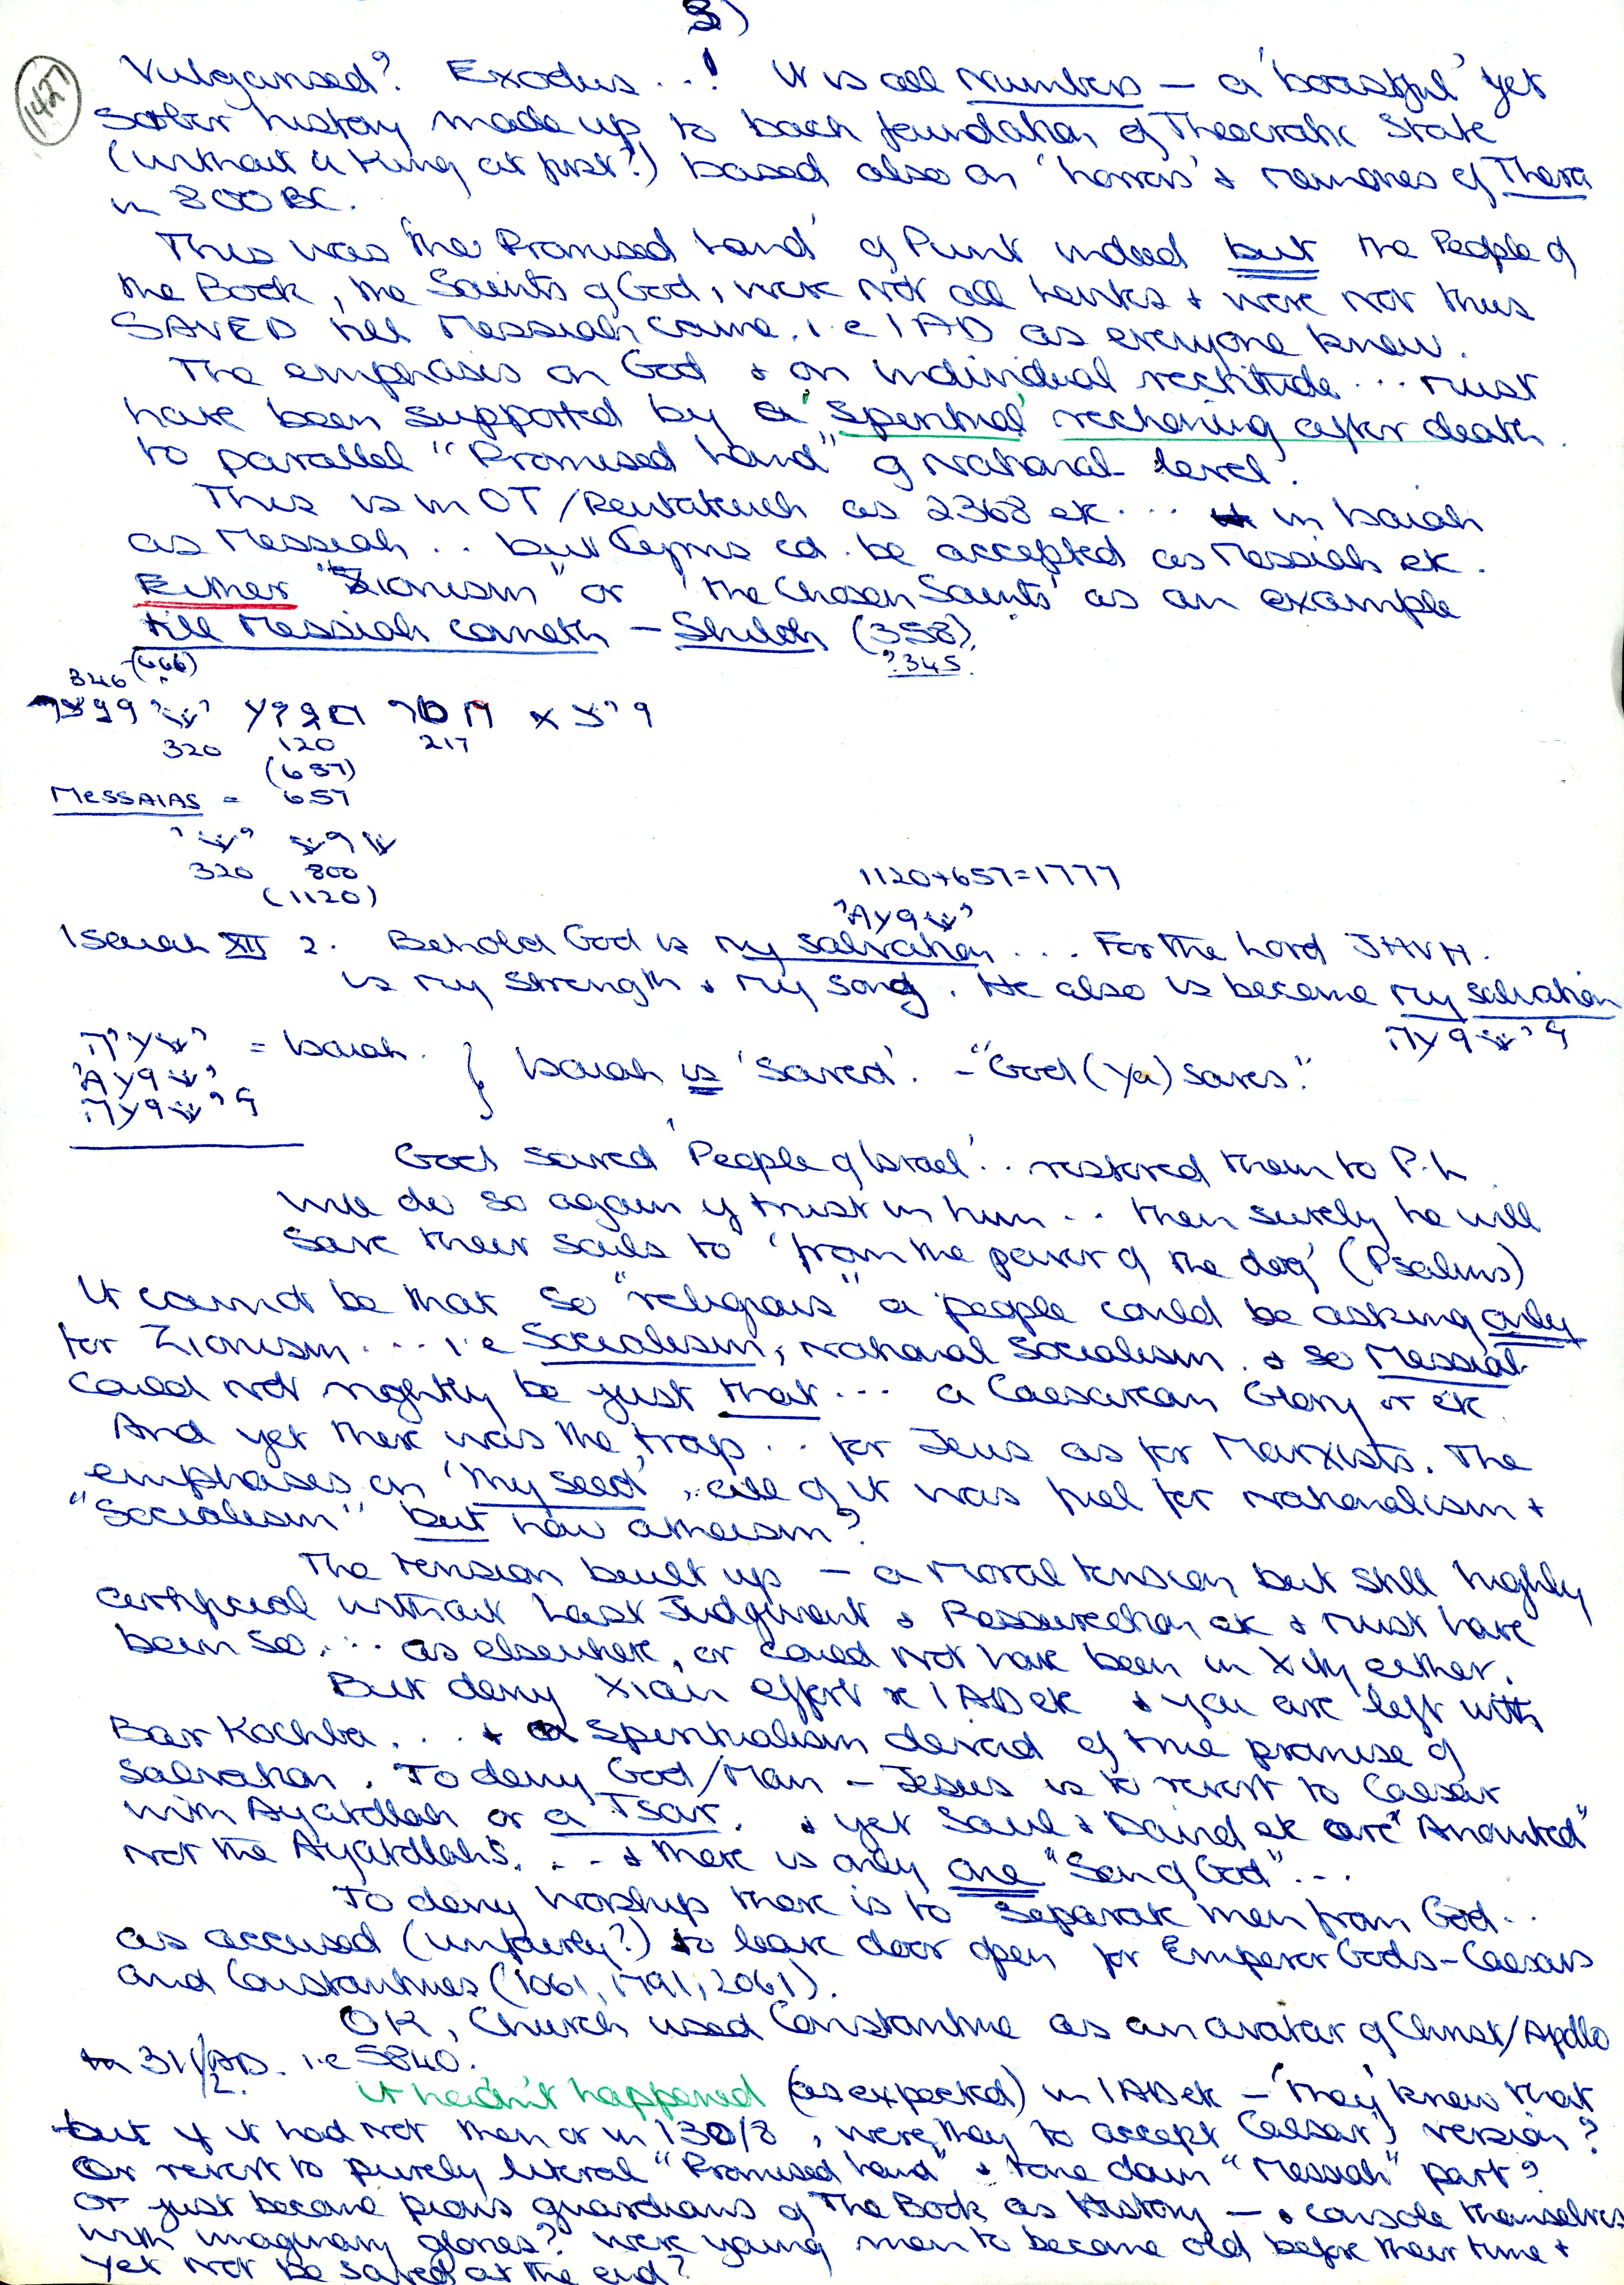 3)
1427
Vulgarised? Exodus ..! It is all Numbers — a 'boastful' yet
sober history made up to back foundation of Theocratic State
(without a King at first?) based also on 'horrors' & memories of Thera
in 800 BC.
This was 'the Promised Land' of Punt indeed but the People of
the Book, the Saints of God, were not all & were not thus
SAVED till Messiah came. i.e 1 AD as everyone knew.
The emphasis on God & on individual rectitude ... must
have been supported by a 'spiritual' reckoning after death.
to parallel "Promised Land" of National level.
This is in OT/Pentateuch as 2368 etc ... in Isaiah
as Messiah .. but Cyrus cd. be accepted as Messiah etc.
Either "Zionism" or 'the Chosen Saints' as an example
till Messiah cometh — Shiloh (358).
?345.
346 (666)
320 120 217
(657)
MESSAIAS = 657
320 800
(1120)
1120+657=1777
Isaiah XII 2. Behold God is my salvation ... For the Lord JHVH.
is my strength & my song. He also is become my salvation
= Isaiah. } Isaiah is 'Saved'. - "God (Ya) saves."
God saved 'People of Israel' .. restored them to P.L
will do so again if trust in him .. then surely he will
save their souls to 'from the power of the dog' (Psalms)
It cannot be that so "religious" a people could be asking only
for Zionism ... i.e Socialism, National Socialism. & so Messiah
could not rightly be just that ... a Caesarean Glory or etc.
And yet there was the trap .. for Jews as for Marxists. The
emphases on 'thy seed', all of it was fuel for nationalism +
"Socialism" but how atheism?
The tension built up — a moral tension but still highly
artificial without Last Judgment & Resurrection etc & must have
been so ... as elsewhere, or could not have been in Xity either.
But deny Xian effort re 1 AD etc & you are left with
Bar Kochba ... & a spiritualism devoid of true promise of
salvation. To deny God/Man - Jesus is to revert to Caesar
with Ayatollah or a Tsar. & yet Saul & David etc are "Anointed"
not the Ayatollahs. ... & there is only one "Son of God"...
To deny worship there is to separate men from God..
as accused (unfairly?) to leave door open for Emperor Gods-Caesars
and Constantines (1061, 1791, 2061).
OK, Church used Constantine as an avatar of Christ/Apollo
in 311/2 AD. i.e 5840.
it hadn't happened (as expected) in 1 AD etc - 'they' knew that
but if it had not then or in 130/8, were they to accept Caesar's version?
Or revert to purely literal "Promised Land" & tone down "Messiah" part?
or just become pious guardians of The Book as History — & console themselves
with imaginary glories? Were young men to become old before their time +
yet not be saved at the end?